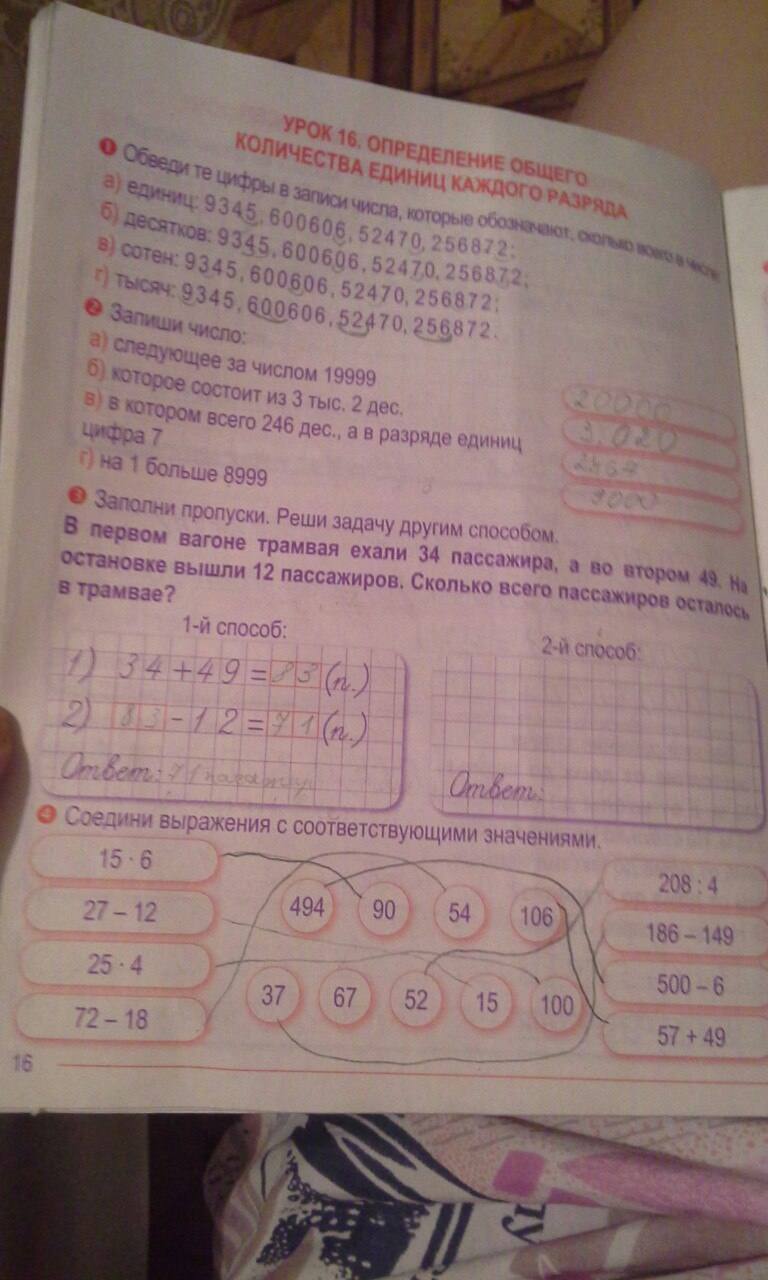 УРОК 16. ОПРЕДЕЛЕНИЕ ОБЩЕГО
КОЛИЧЕСТВА ЕДИНИЦ КАЖДОГО РАЗРЯДА
1 Обведи те цифры в записи числа, которые обозначают, сколько всего в числе:
а) единиц: 9345, 600606, 52470, 256872;
б) десятков: 9345, 600606, 52470, 256872;
в) сотен: 9345, 600606, 52470, 256872;
г) тысяч: 9345, 600606, 52470, 256872.
2 Запиши число:
а) следующее за числом 19999
20000
б) которое состоит из 3 тыс. 2 дес.
3.020
в) в котором всего 246 дес., а в разряде единиц
цифра 7
2467
г) на 1 больше 8999
9000
3 Заполни пропуски. Реши задачу другим способом.
В первом вагоне трамвая ехали 34 пассажира, а во втором 49. На
остановке вышли 12 пассажиров. Сколько всего пассажиров осталось
в трамвае?
1-й способ:
1) 34+49=83 (п.)
2) 83-12=71 (п.)
Ответ: 71
2-й способ:
Ответ:
4 Соедини выражения с соответствующими значениями.
15 · 6
27 – 12
25 · 4
72 – 18
494 90 54 106
37 67 52 15 100
208 : 4
186 – 149
500 – 6
57 + 49
16